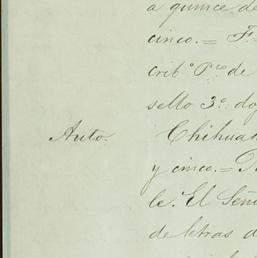 a quince de
cinco.= F.
crib.º P.co de
sello 3.º do
Auto. Chihuah
y cinco.=
le. El Señ
de letras d